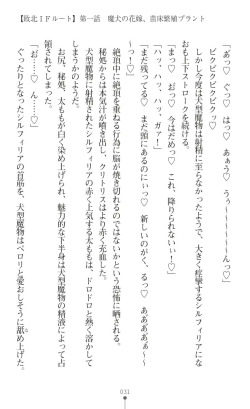 【敗北IFルート】第一話　魔犬の花嫁、苗床繁殖プラント
「あっ♡　ぐぅっ♡　はっ♡　あぁう♡　うぅ～～～～～んっ♡」
ビクビクビクビクッ♡
しかし今度は犬型魔物は射精に至らなかったようで、大きく痙攣するシルフィリアになおも上下ストロークを続ける。
「まっ♡　おっ♡　今はだめっ♡　これ、降りられないっ♡」
「ハッ、ハッ、ハッ、ガァ！」
「まだ残ってる♡　まだ頭にあるのにぃっ♡　新しいのがくる、くるっ♡　ああああぁ～～～っ！♡」
絶頂中に絶頂を重ねる行為に脳が焼き切れるのではないかという恐怖に晒される。
秘処からは本気汁が噴き出し、クリトリスはより赤く充血した。
犬型魔物に射精されたシルフィリアの赤く上気する太ももは、ドロドロと熱く溶かして
お尻、秘処、太ももが白く染め上げられ、魅力的な下半身は犬型魔物の精液によって占領されてしまう。
「お……♡　ん……♡」
ぐったりとなったシルフィリアの首筋を、犬型魔物はベロリと愛おしそうに舐め上げた。
031